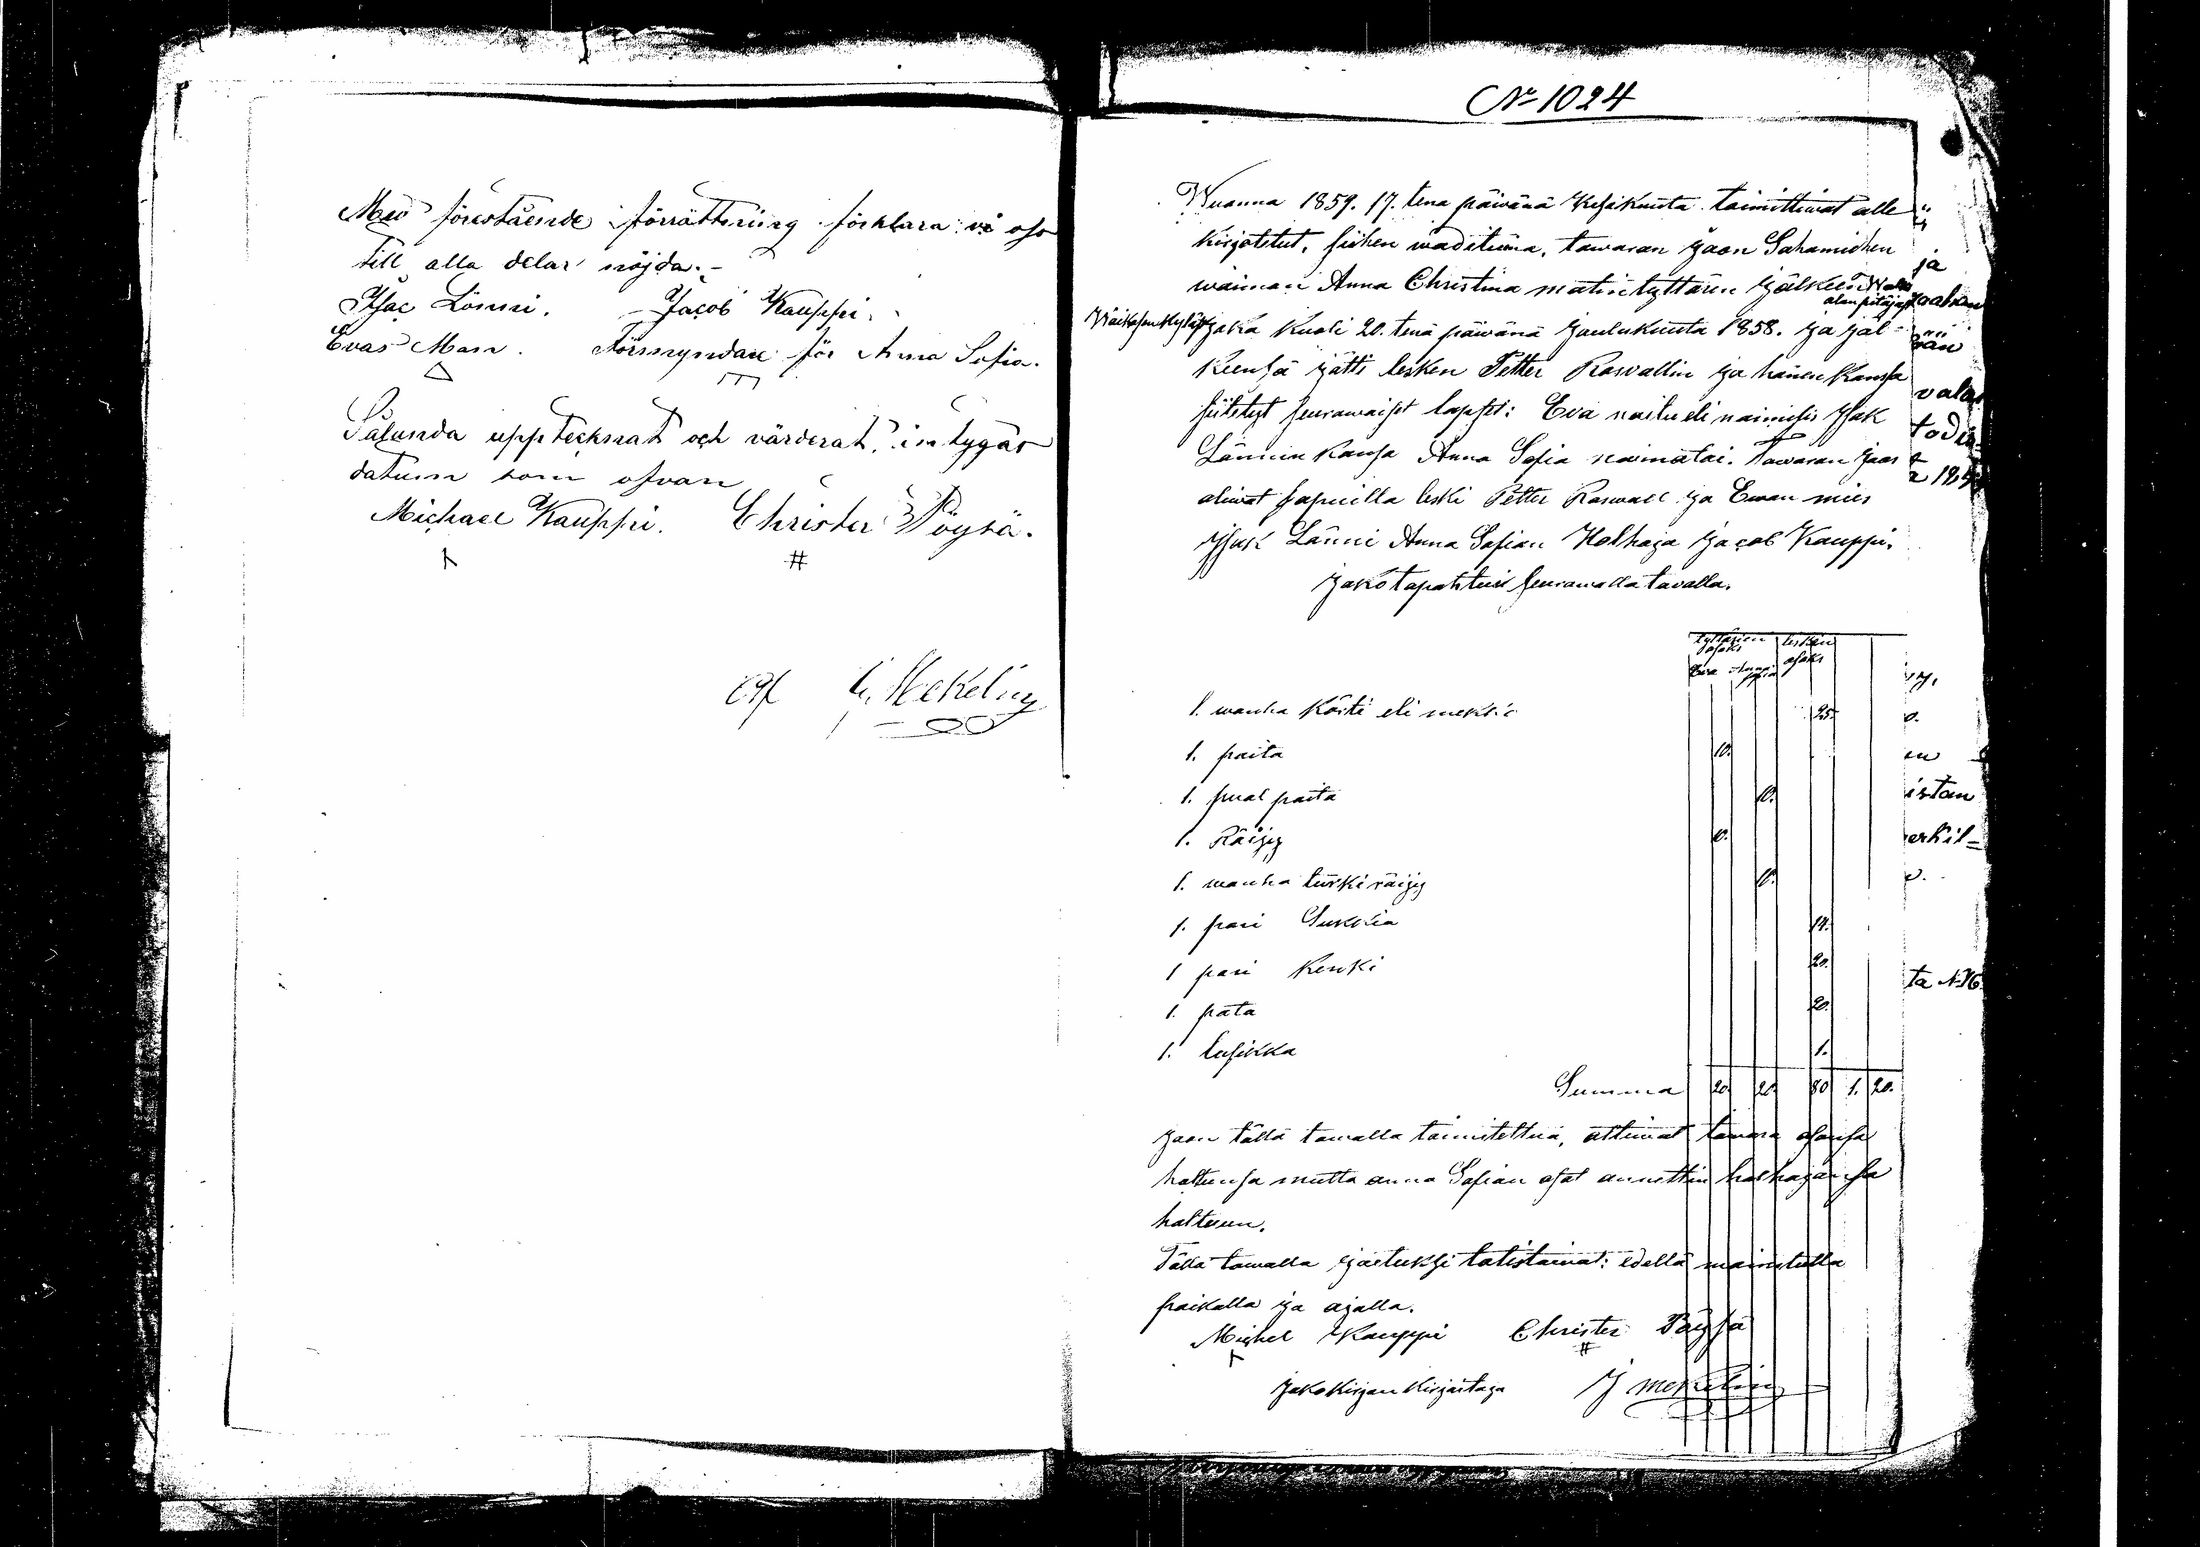 Med förestående förrättning förklara vi oss
till alla delar nöjda.-
Isac Lönni. Jacob Kauppi.
Evas Man. Förmyndare för Anna Sofia.
Sålunda upptecknat och värderat, intygar
datum som ofvan
Michael Kauppi. Christer Pöysä.
#
G. Mekelin
No 1024
Wuonna 1859. 17. tena päivänä Kesäkuuta toimittivat alle
kirjotetut, siihen waadittuina, tawaran jaon Sahamiehen
waimon Anna Christina matintyttären jälkeen
alan pitäjäs
Wäikosen kylas joka kuoli 20. tenä päivänä Joulukuuta 1858. ja jäl-
keensä jätti lesken Petter Raswallin ja hänen kansa
siitetyt seurawaiset lapset: Eva nailu eli naimisis Isak
Lännin kansa Anna Sofia naimatoi. Tawaran jaos
oliwat sapuilla leski Petter Raswall ja Ewan mies
Isak Länni Anna Sofian Holhaja Jacob Kauppi.
Jako tapahtui seurawalla tavalla.
tyttärien osaksi lesken osaksi
Eva Anna Sofia
1. wanha Körti eli mekko 25.
1. paita 10.
1. puol paita 10.
1. Röijy 10.
1. wanha turkiröijy 10.
1. pari Sukkia 14.
1 pari Kenki 20.
1. pata 20.
1. lusikka 1.
Summa 20. 20. 80 1. 20.
Jaon tällä tawalla toimitettua, ottiwat tawara osansa
haltunsa mutta anna Sofian osat annettin holhojansa
haltuun.
Tällä tawalla jaetuksi totistawat: edellä mainitulla
paikalla ja ajalla.
Michel Kauppi Christer Pöysä
#
Jakokirjan kirjoitaja J Mekelin
ja
valan
todis-
istan
erkil=
ta N:16